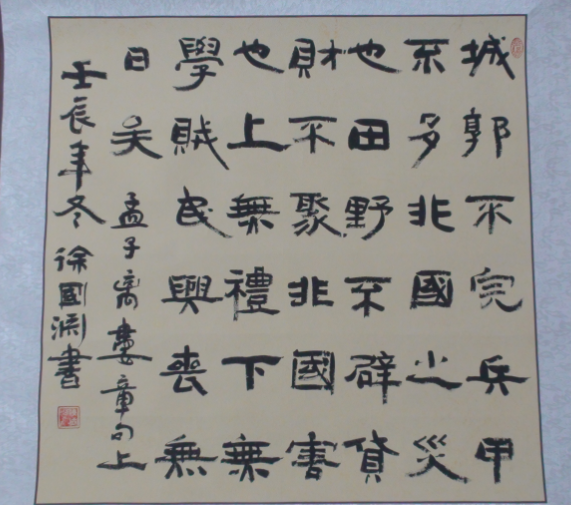 城郭不完兵甲
不多非國之災
也田野不辟貨
財不聚非國害
也上無禮下無
學賊民興喪無
日矣 孟子离婁章句上
壬辰年冬 徐國渊書